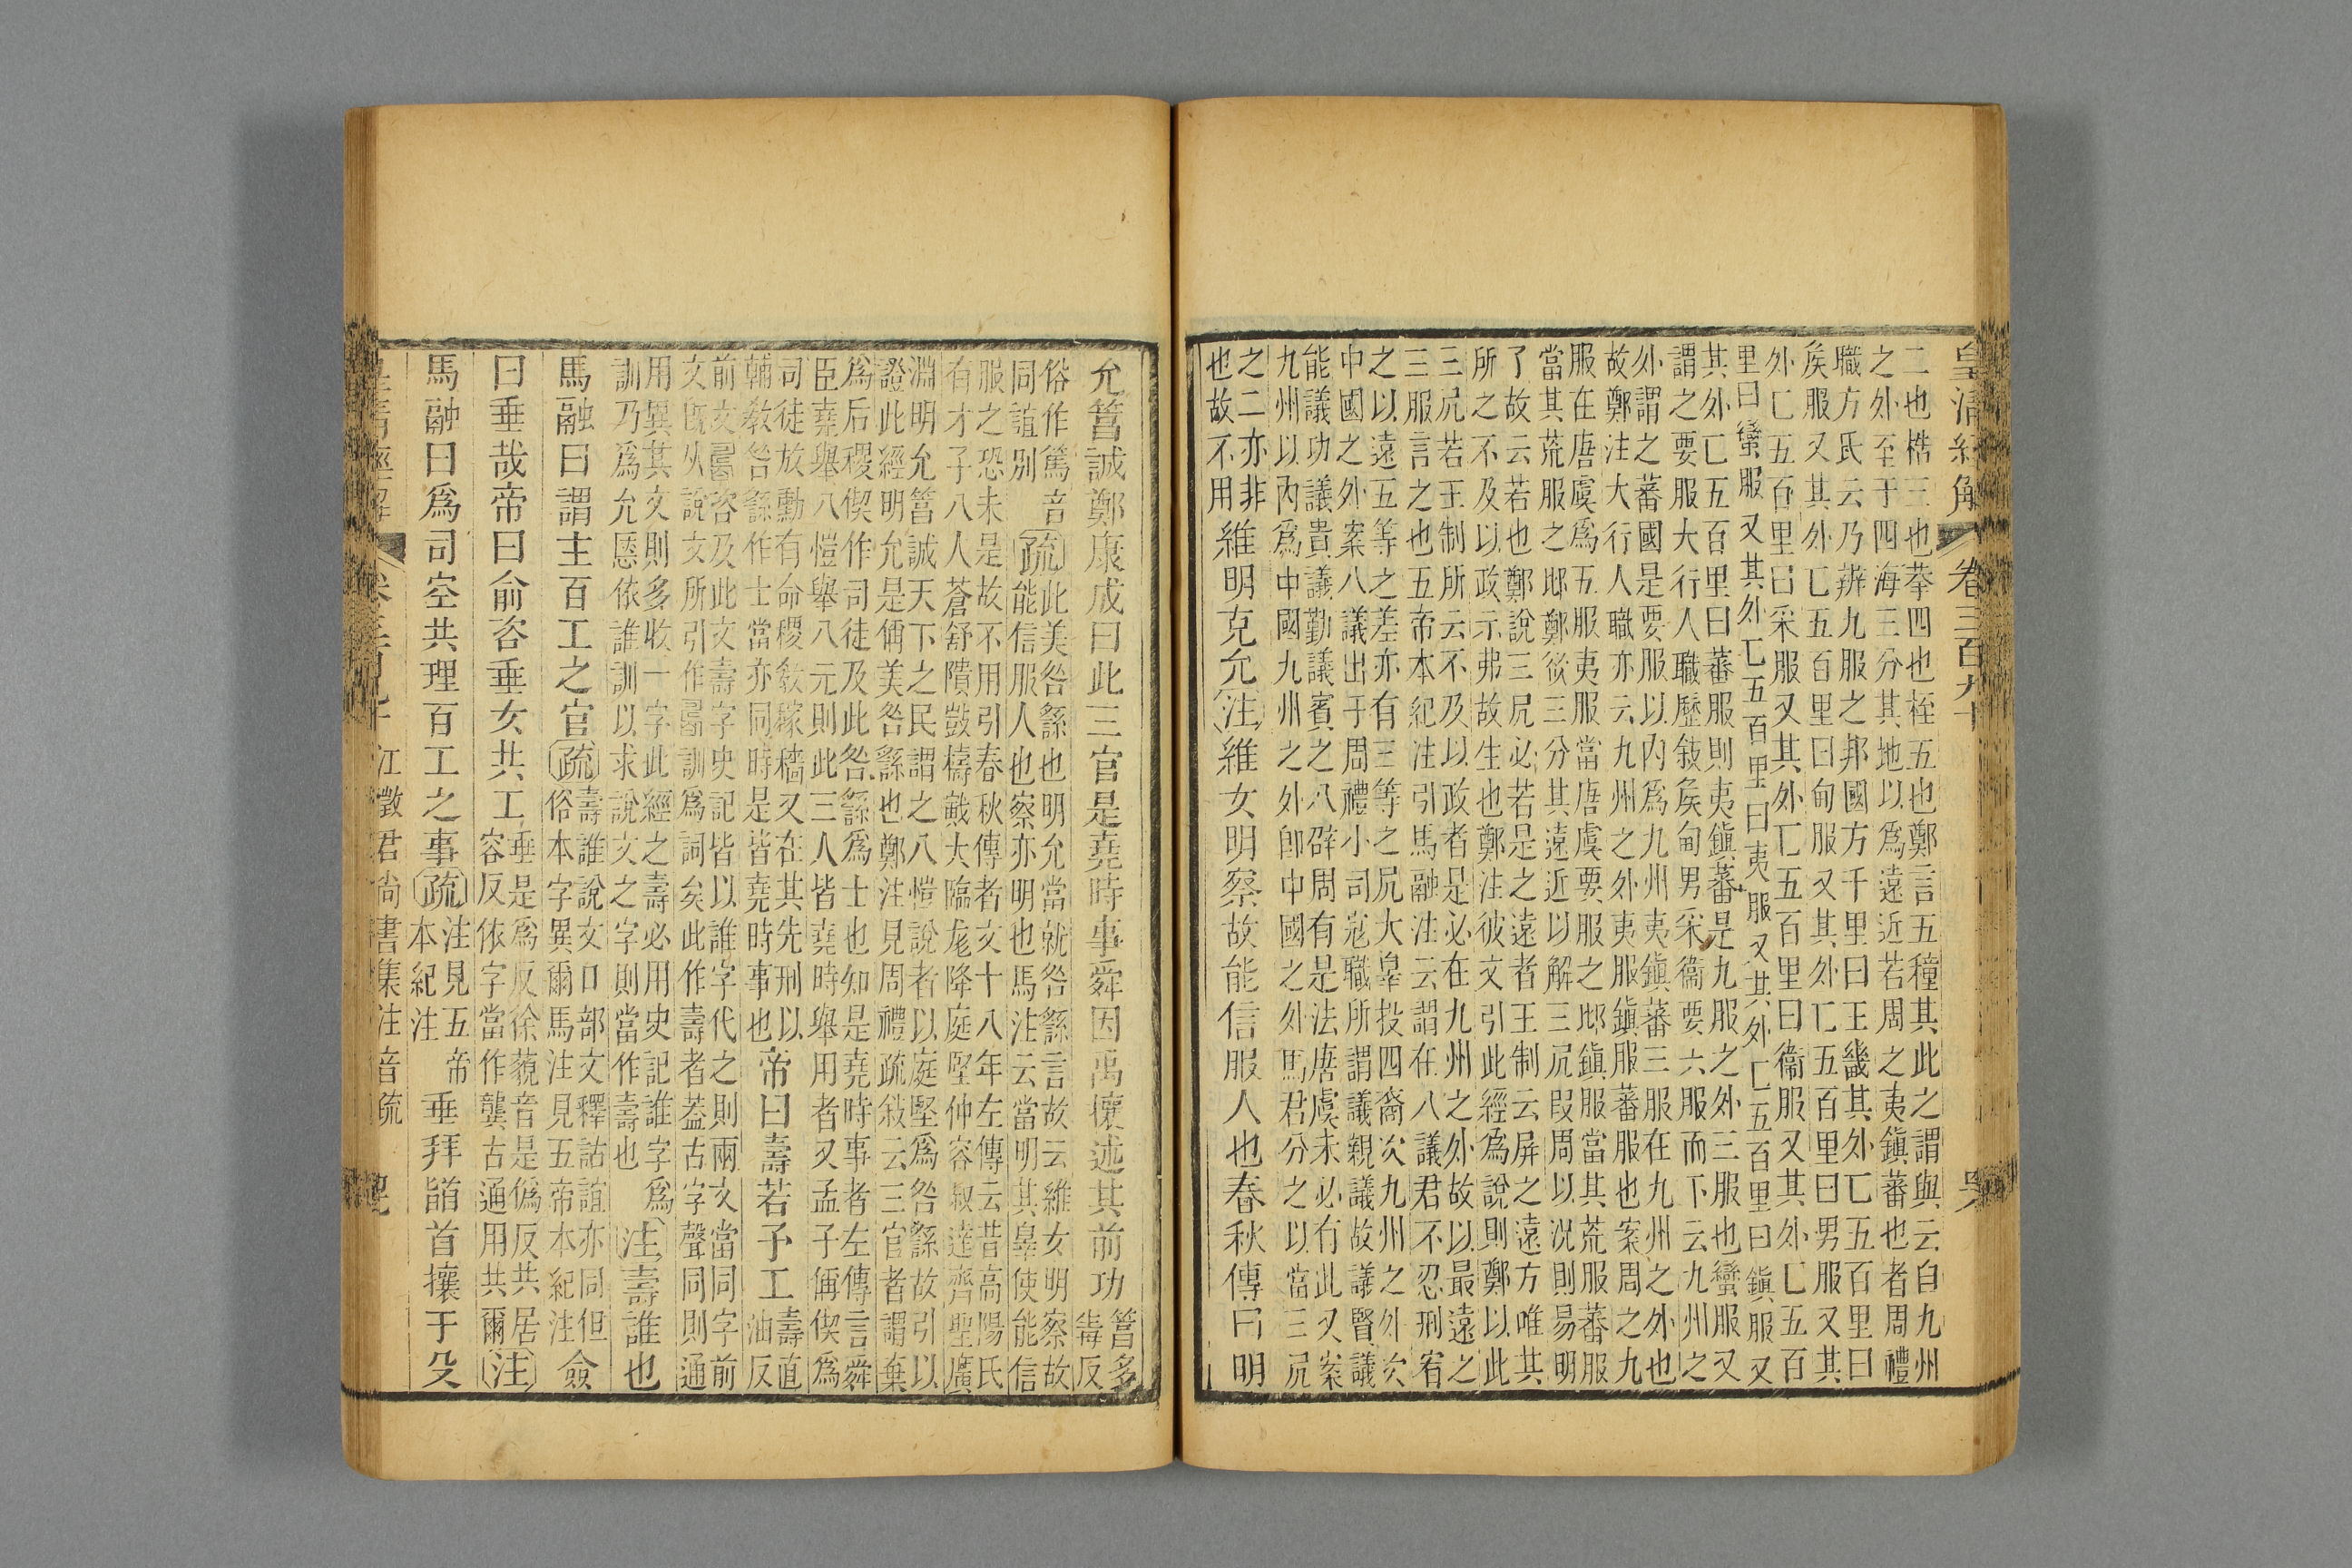 皇清經解 卷三百九十
二也梏三也拲四也桎五也鄭言五種其此之謂與云自九州
之外至于四海三分其地以爲遠近若周之夷鎭蕃也者周禮
職方氏云乃辨九服之邦國方千里曰王畿其外匚五百里曰
矦服又其外匚五百里曰甸服又其外匚五百里曰男服又其
外匚五百里曰采服又其外匚五百里曰衞服又其外匚五百
里曰蠻服又其外匚五百里曰夷服又其外匚五百里曰鎭服又
其外匚五百里曰蕃服則夷鎭蕃是九服之外三服也蠻服又
謂之要服大行人職歷敍矦甸男采衞要六服而下云九州之
外謂之蕃國是要服以內爲九州夷鎭蕃三服在九州之外也
故鄭注大行人職亦云九州之外夷服鎭服蕃服也案周之九
服在唐虞爲五服夷服當唐虞要服之𨛬鎭服當其荒服蕃服
當其荒服之𨛬鄭欲三分其遠近以解三凥叚周以况則易明
了故云若也鄭說三凥必若是之遠者王制云屏之遠方唯其
所之不及以政示弗故生也鄭注彼文引此經爲說則鄭以此
三凥若王制所云不及以政者是必在九州之外故以最遠之
三服言之也五帝本紀注引馬融注云謂在八議君不忍刑宥
之以遠五等之差亦有三等之凥大辠投四裔次九州之外次
中國之外案八議出于周禮小司寇職所謂議親議故議賢議
能議功議貴議勤議賓之八辟周有是法唐虞未必有此又案
九州以內爲中國九州之外卽中國之外馬君分之以當三凥
之二亦非
也故不用
維明克允注維女明察故能信服人也春秋傳曰明
允䈞誠鄭康成曰此三官是堯時事舜因禹攘述其前功
䈞多
毒反
俗作篤音
同誼别
疏
此美咎繇也明允當就咎繇言故云維女明察故
能信服人也察亦明也馬注云當明其辠使能信
服之恐未是故不用引春秋傳者文十八年左傳云昔高陽氏
有才子八人蒼舒隤敳檮戭大臨尨降庭堅仲容叔逹齊聖廣
淵明允䈞誠天下之民謂之八愷說者以庭堅爲咎繇故引以
證此經明允是偁美咎繇也鄭注見周禮疏敍云三官者謂棄
爲后稷偰作司徒及此咎繇爲士也知是堯時事者左傳言舜
臣堯舉八愷舉八元則此三人皆堯時舉用者又孟子偁偰爲
司徒放勳有命稷敎稼穡又在其先刑以
輔敎咎繇作士當亦同時是皆堯時事也
帝曰壽若予工
壽直
油反
前文𠷎咨及此文壽字史記皆以誰字代之則兩文當同字前
文旣㳄說文所引作𠷎訓爲詞矣此作壽者葢古字聲同則通
用異其文則多收一字此經之壽必用史記誰字爲
訓乃爲允愜依誰訓以求說文之字則當作壽也
注壽誰也
馬融曰謂主百工之官疏
壽誰說文口部文釋詁誼亦同但
俗本字異爾馬注見五帝本紀注
僉
曰垂哉帝曰俞咨垂女共工
垂是爲反徐藐音是僞反共居
容反依字當作龔古通用共爾
注
馬融曰爲司空共理百工之事疏
注見五帝
本紀注
垂拜䭫首攘于殳
皇清經解 卷三百九十 江徵君尚書集注音疏